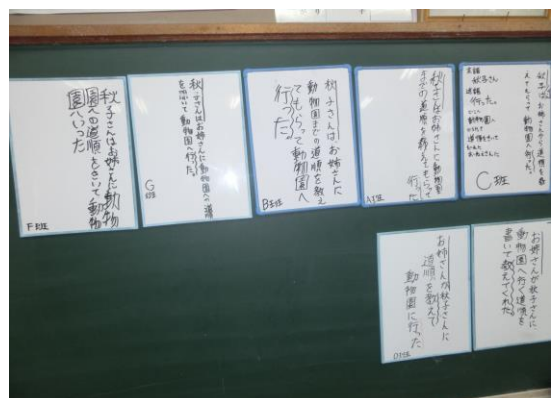 秋子さんはお姉さんに動物
園への道順をきいて動物
園へいった
F班
秋子さんはお姉さんに動物園への道順
を聞いて動物園へ行った。
G
班
秋子さんはお姉さんに
動物園までの道順を教え
てもらって動物園へ
行った。
B班
秋子さんはお姉さんに動物園
の道順を教えてもらって
行った
A班
秋子は、お姉さんから道順を教
えてもらって動物園へ行った。
主語
秋子さん
述語
行った。
動物園へ
道順をきいて
お姉さんに
C班
お姉さんが秋子さんに
道順を教えて
動物園に行った
D班
お姉さんが秋子さんに、
動物園へ行く道順を
書いて教えてくれた